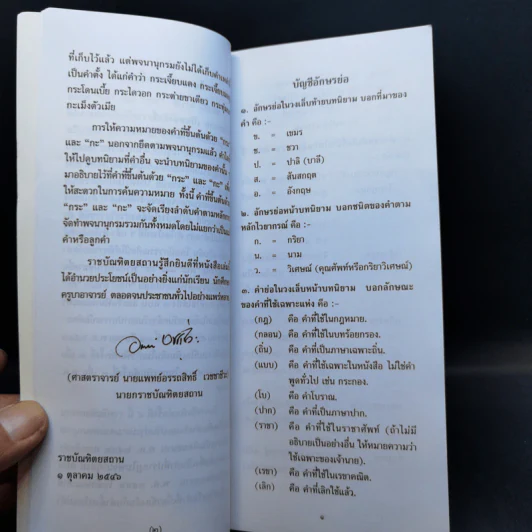 ที่เก็บไว้แล้ว แต่พจนานุกรมยังไม่ได้เก็บคำเหล่า
เป็นคำตั้ง ได้แก่คำว่า กระเจี๊ยบแดง
กระโดนเบี้ย กระไดวอก กระต่ายขาเดียว
กะเม็งตัวเมีย
การให้ความหมายของคำที่ขึ้นต้นด้วย
และ "กะ" นอกจากยึดตามพจนานุกรมแล้ว
ให้ไปดูบทนิยามที่คำอื่น จะนำบทนิยามของคำนั้น
มาอธิบายไว้ที่คำที่ขึ้นต้นด้วย "กระ" และ "กะ"
ให้สะดวกในการค้นความหมาย ทั้งนี้ คำที่ขึ้นต้น
"กระ" และ "กะ" จะจัดเรียงลำดับคำตามหลัก
จัดทำพจนานุกรมรวมกันทั้งหมดโดยไม่แยกว่าเป็น
คำหรือลูกคำ
ราชบัณฑิตยสถานรู้สึกยินดีที่หนังสือเล่ม
ได้อำนวยประโยชน์เป็นอย่างยิ่งแก่นักเรียน
ครูบาอาจารย์ ตลอดจนประชาชนทั่วไปอย่างแพร่
(ศาสตราจารย์ นายแพทย์อรรถสิทธิ์ เวชชาชีวะ
นายกราชบัณฑิตยสถาน
ราชบัณฑิตยสถาน
๑ ตุลาคม ๒๕๔๖
บัญชีอักษรย่อ
๑. อักษรย่อในวงเล็บท้ายบทนิยาม บอกที่มาของ
คำ คือ :-
ข. = เขมร
ช. = ชวา
ป. = ปาลิ (บาลี)
ส. = สันสกฤต
อ. = อังกฤษ
๒. อักษรย่อหน้าบทนิยาม บอกชนิดของคำตาม
หลักไวยากรณ์ คือ :-
ก. = กริยา
น. = นาม
ว. = วิเศษณ์ (คุณศัพท์หรือกริยาวิเศษณ์)
๓. คำย่อในวงเล็บหน้าบทนิยาม บอกลักษณะ
ของคำที่ใช้เฉพาะแห่ง คือ :-
(กฎ) คือ คำที่ใช้ในกฎหมาย.
(กลอน) คือ คำที่ใช้ในบทร้อยกรอง.
(ถิ่น) คือ คำที่เป็นภาษาเฉพาะถิ่น.
(แบบ) คือ คำที่ใช้เฉพาะในหนังสือ ไม่ใช่คำ
พูดทั่วไป เช่น กระทอง.
(โบ) คือ คำโบราณ.
(ปาก) คือ คำที่เป็นภาษาปาก.
(ราชา) คือ คำที่ใช้ในราชาศัพท์ (ถ้าไม่มี
อธิบายเป็นอย่างอื่น ให้หมายความว่า
ใช้เฉพาะของเจ้านาย).
(เรขา) คือ คำที่ใช้ในเรขาคณิต.
(เลิก) คือ คำที่เลิกใช้แล้ว.